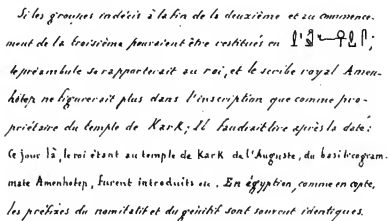 Si les groupes indécis à la fin de la deuxième et au commence-
ment de la troisième pouvaient être restitués en
le préambule se rapporterait au roi, et le scribe royal Amen-
hôtep ne figurerait plus dans l'inscription que comme pro-
priétaire du temple de Kark; Il faudrait lire après la date:
Ce jour là, le roi étant au temple de Kark de l'Auguste, du basilicogram-
mate Amenhotep, furent introduits etc. En égyptien, comme en copte,
les préfixes du nominatif et du génitif sont souvent identiques.